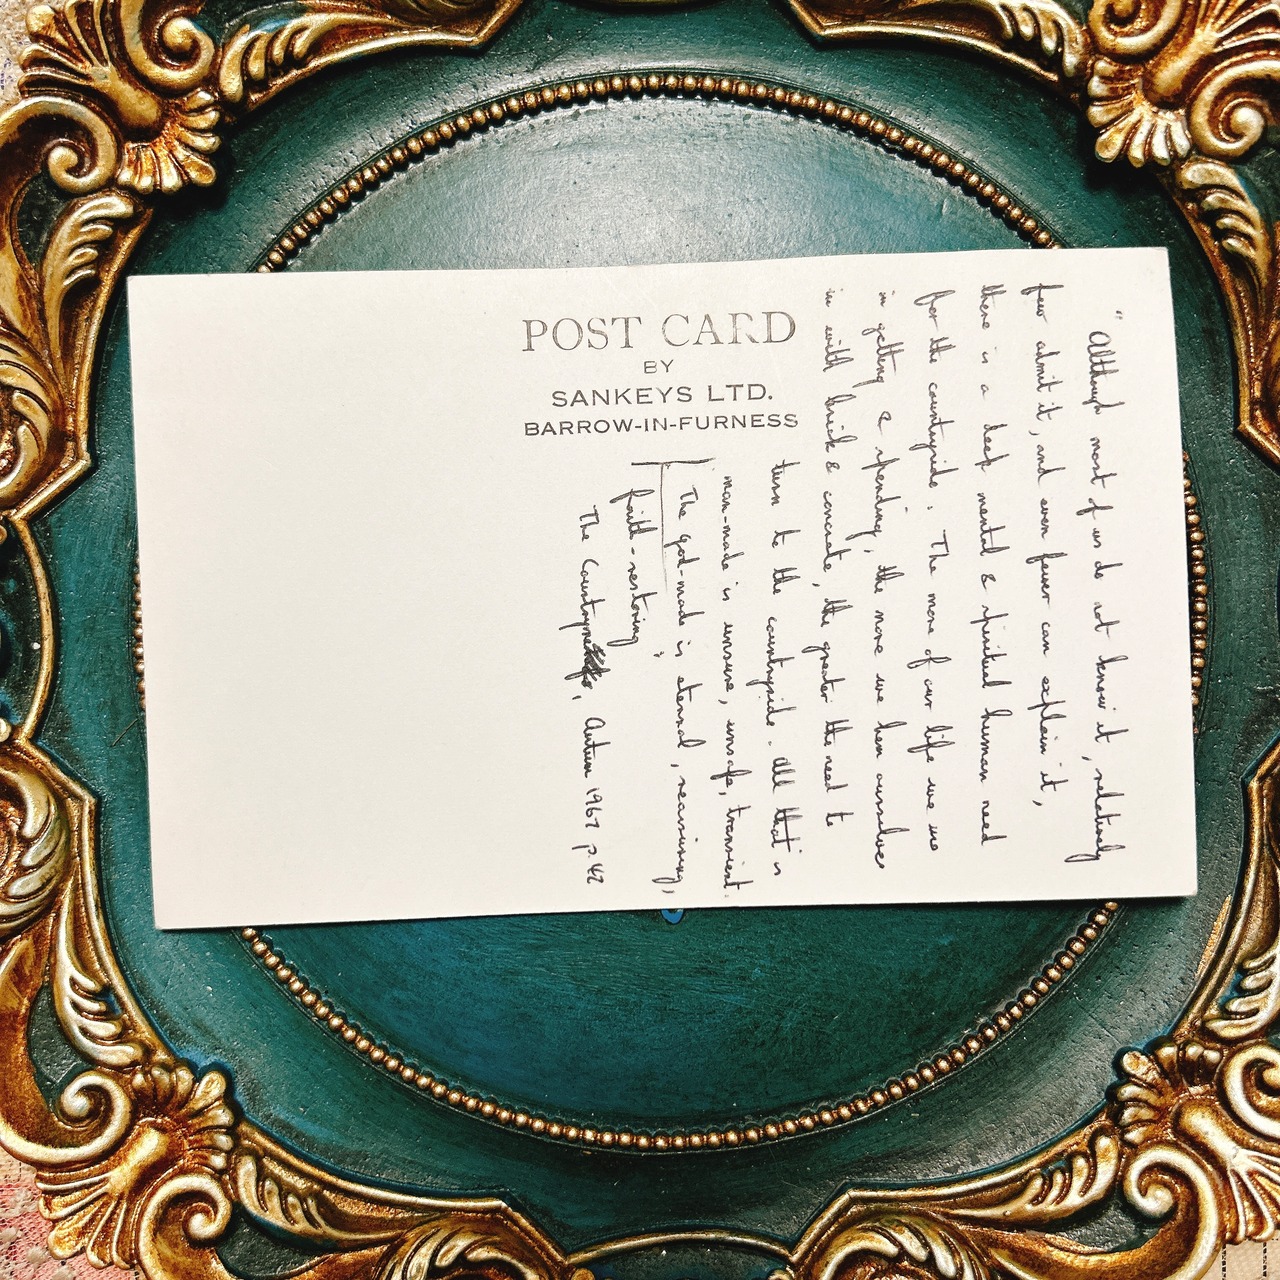 POST CARD
BY
SANKEYS LTD.
BARROW-IN-FURNESS
"Although most of us do not know it, relatively
few admit it, and even fewer can explain it,
there is a deep mental & spiritual human need
for the countryside. The more of our life we use
in getting & spending, the more we hem ourselves
in with brick & concrete, the greater the need to
turn to the countryside. All that is
man-made is unsure, unsafe, transient.
The god-made is eternal, reassuring,
faith-restoring"
The Countryman, Autumn 1967 p.42